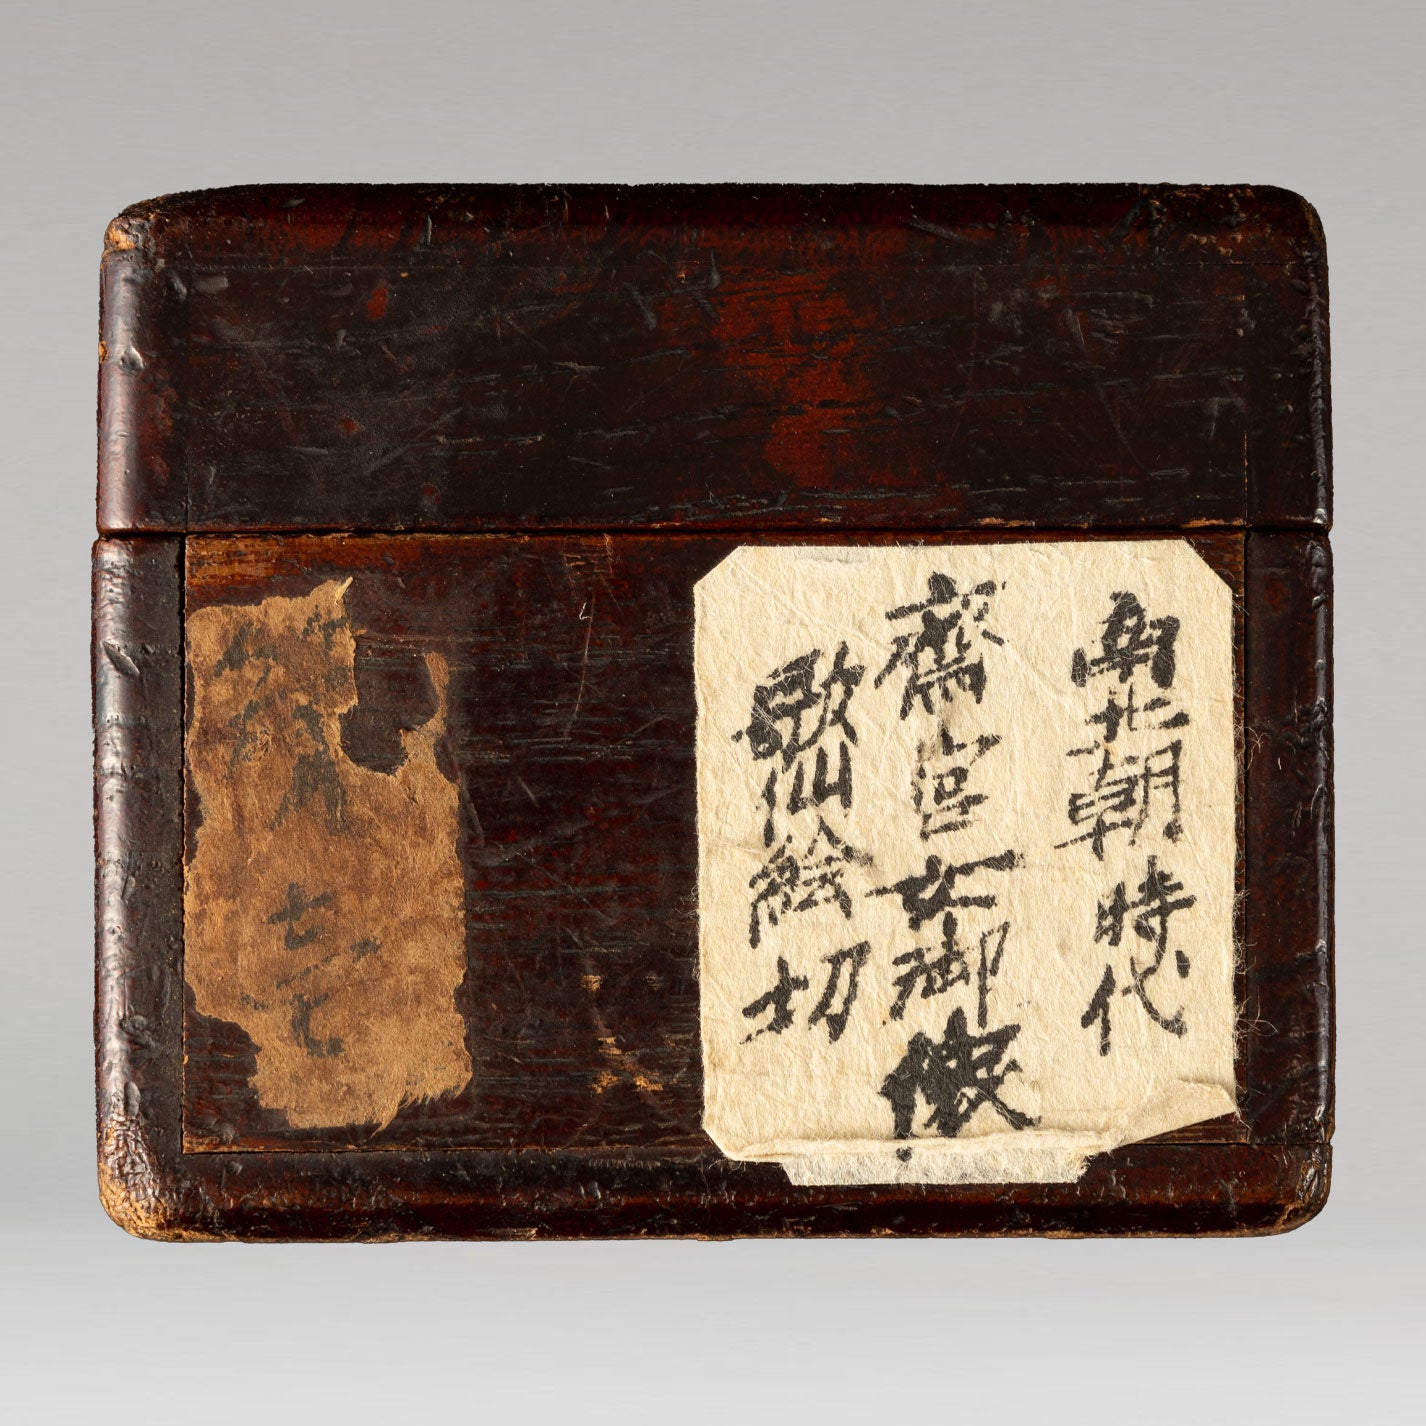 南北朝時代
齋宮女御像
歌仙絵切